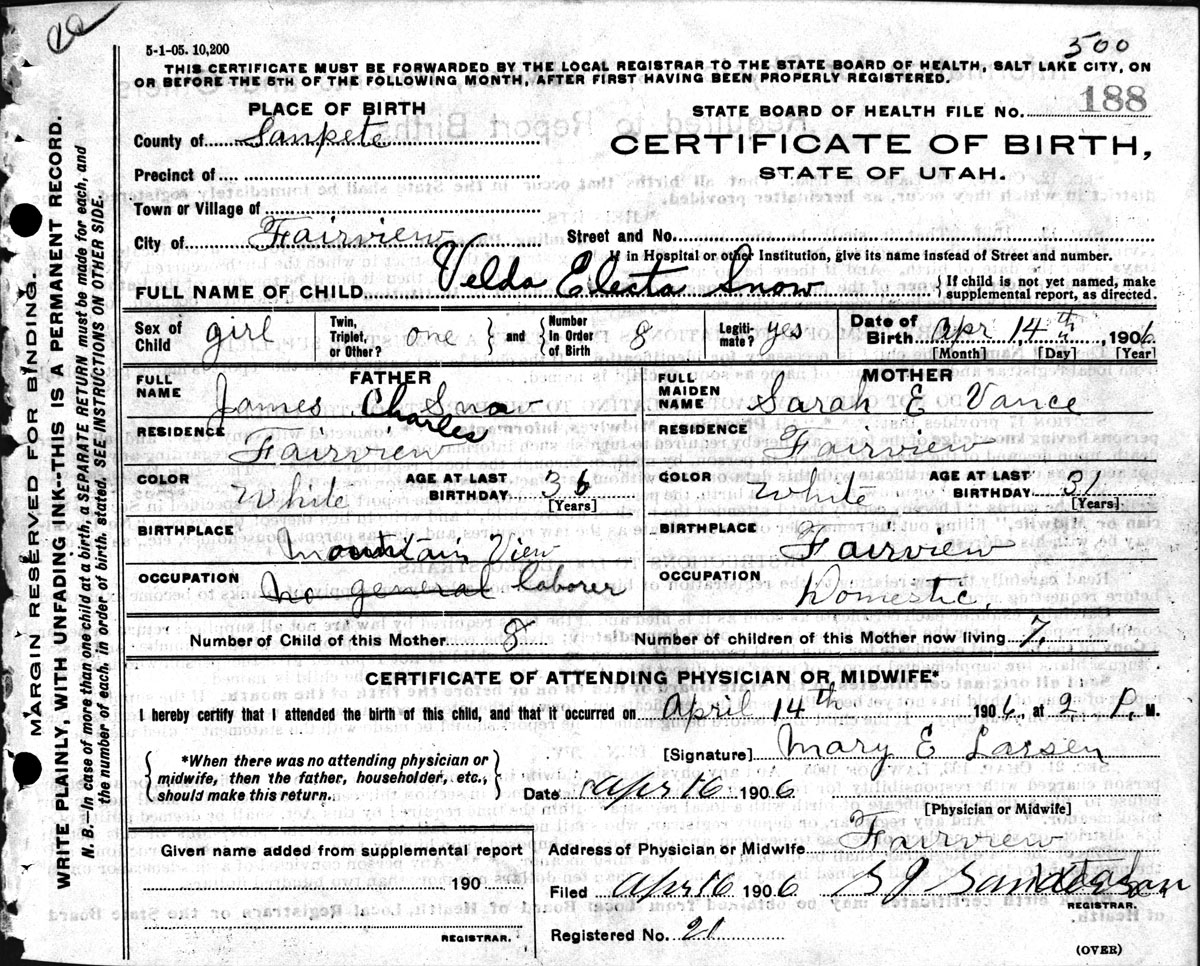 5-1-05. 10,200
500
THIS CERTIFICATE MUST BE FORWARDED BY THE LOCAL REGISTRAR TO THE STATE BOARD OF HEALTH, SALT LAKE CITY, ON
OR BEFORE THE 5TH OF THE FOLLOWING MONTH, AFTER FIRST HAVING BEEN PROPERLY REGISTERED.
PLACE OF BIRTH
STATE BOARD OF HEALTH FILE NO. 188
County of Sanpete
CERTIFICATE OF BIRTH,
Precinct of
STATE OF UTAH.
Town or Village of
City of Fairview Street and No.
If in Hospital or other Institution, give its name instead of Street and number.
FULL NAME OF CHILD Velda Electa Snow { If child is not yet named, make
supplemental report, as directed.
Sex of Child girl Twin, Triplet, or Other? one } and { Number In Order of Birth 8 Legiti- mate? yes Date of Birth Apr 14th, 1906
[Month] [Day] [Year]
FATHER
FULL NAME James Charles Snow
RESIDENCE Fairview
COLOR White AGE AT LAST BIRTHDAY 36
[Years]
BIRTHPLACE Mountain View
OCCUPATION general laborer
MOTHER
FULL MAIDEN NAME Sarah E Vance
RESIDENCE Fairview
COLOR White AGE AT LAST BIRTHDAY 31
[Years]
BIRTHPLACE Fairview
OCCUPATION Domestic.
Number of Child of this Mother 8 Number of children of this Mother now living 7.
CERTIFICATE OF ATTENDING PHYSICIAN OR MIDWIFE*
I hereby certify that I attended the birth of this child, and that it occurred on April 14th 1906, at 2 P. M.
{ *When there was no attending physician or
midwife, then the father, householder, etc.,
should make this return. }
[Signature] Mary E Larsen
Date Apr 16 1906
[Physician or Midwife]
Given name added from supplemental report
190
REGISTRAR.
Address of Physician or Midwife Fairview
Filed Apr 16 1906 Sanderson
REGISTRAR.
Registered No. 21
(OVER)
MARGIN RESERVED FOR BINDING
WRITE PLAINLY, WITH UNFADING INK--THIS IS A PERMANENT RECORD.
N. B.—In case of more than one child at a birth, a SEPARATE RETURN must be made for each, and
the number of each, in order of birth, stated. SEE INSTRUCTIONS ON OTHER SIDE.